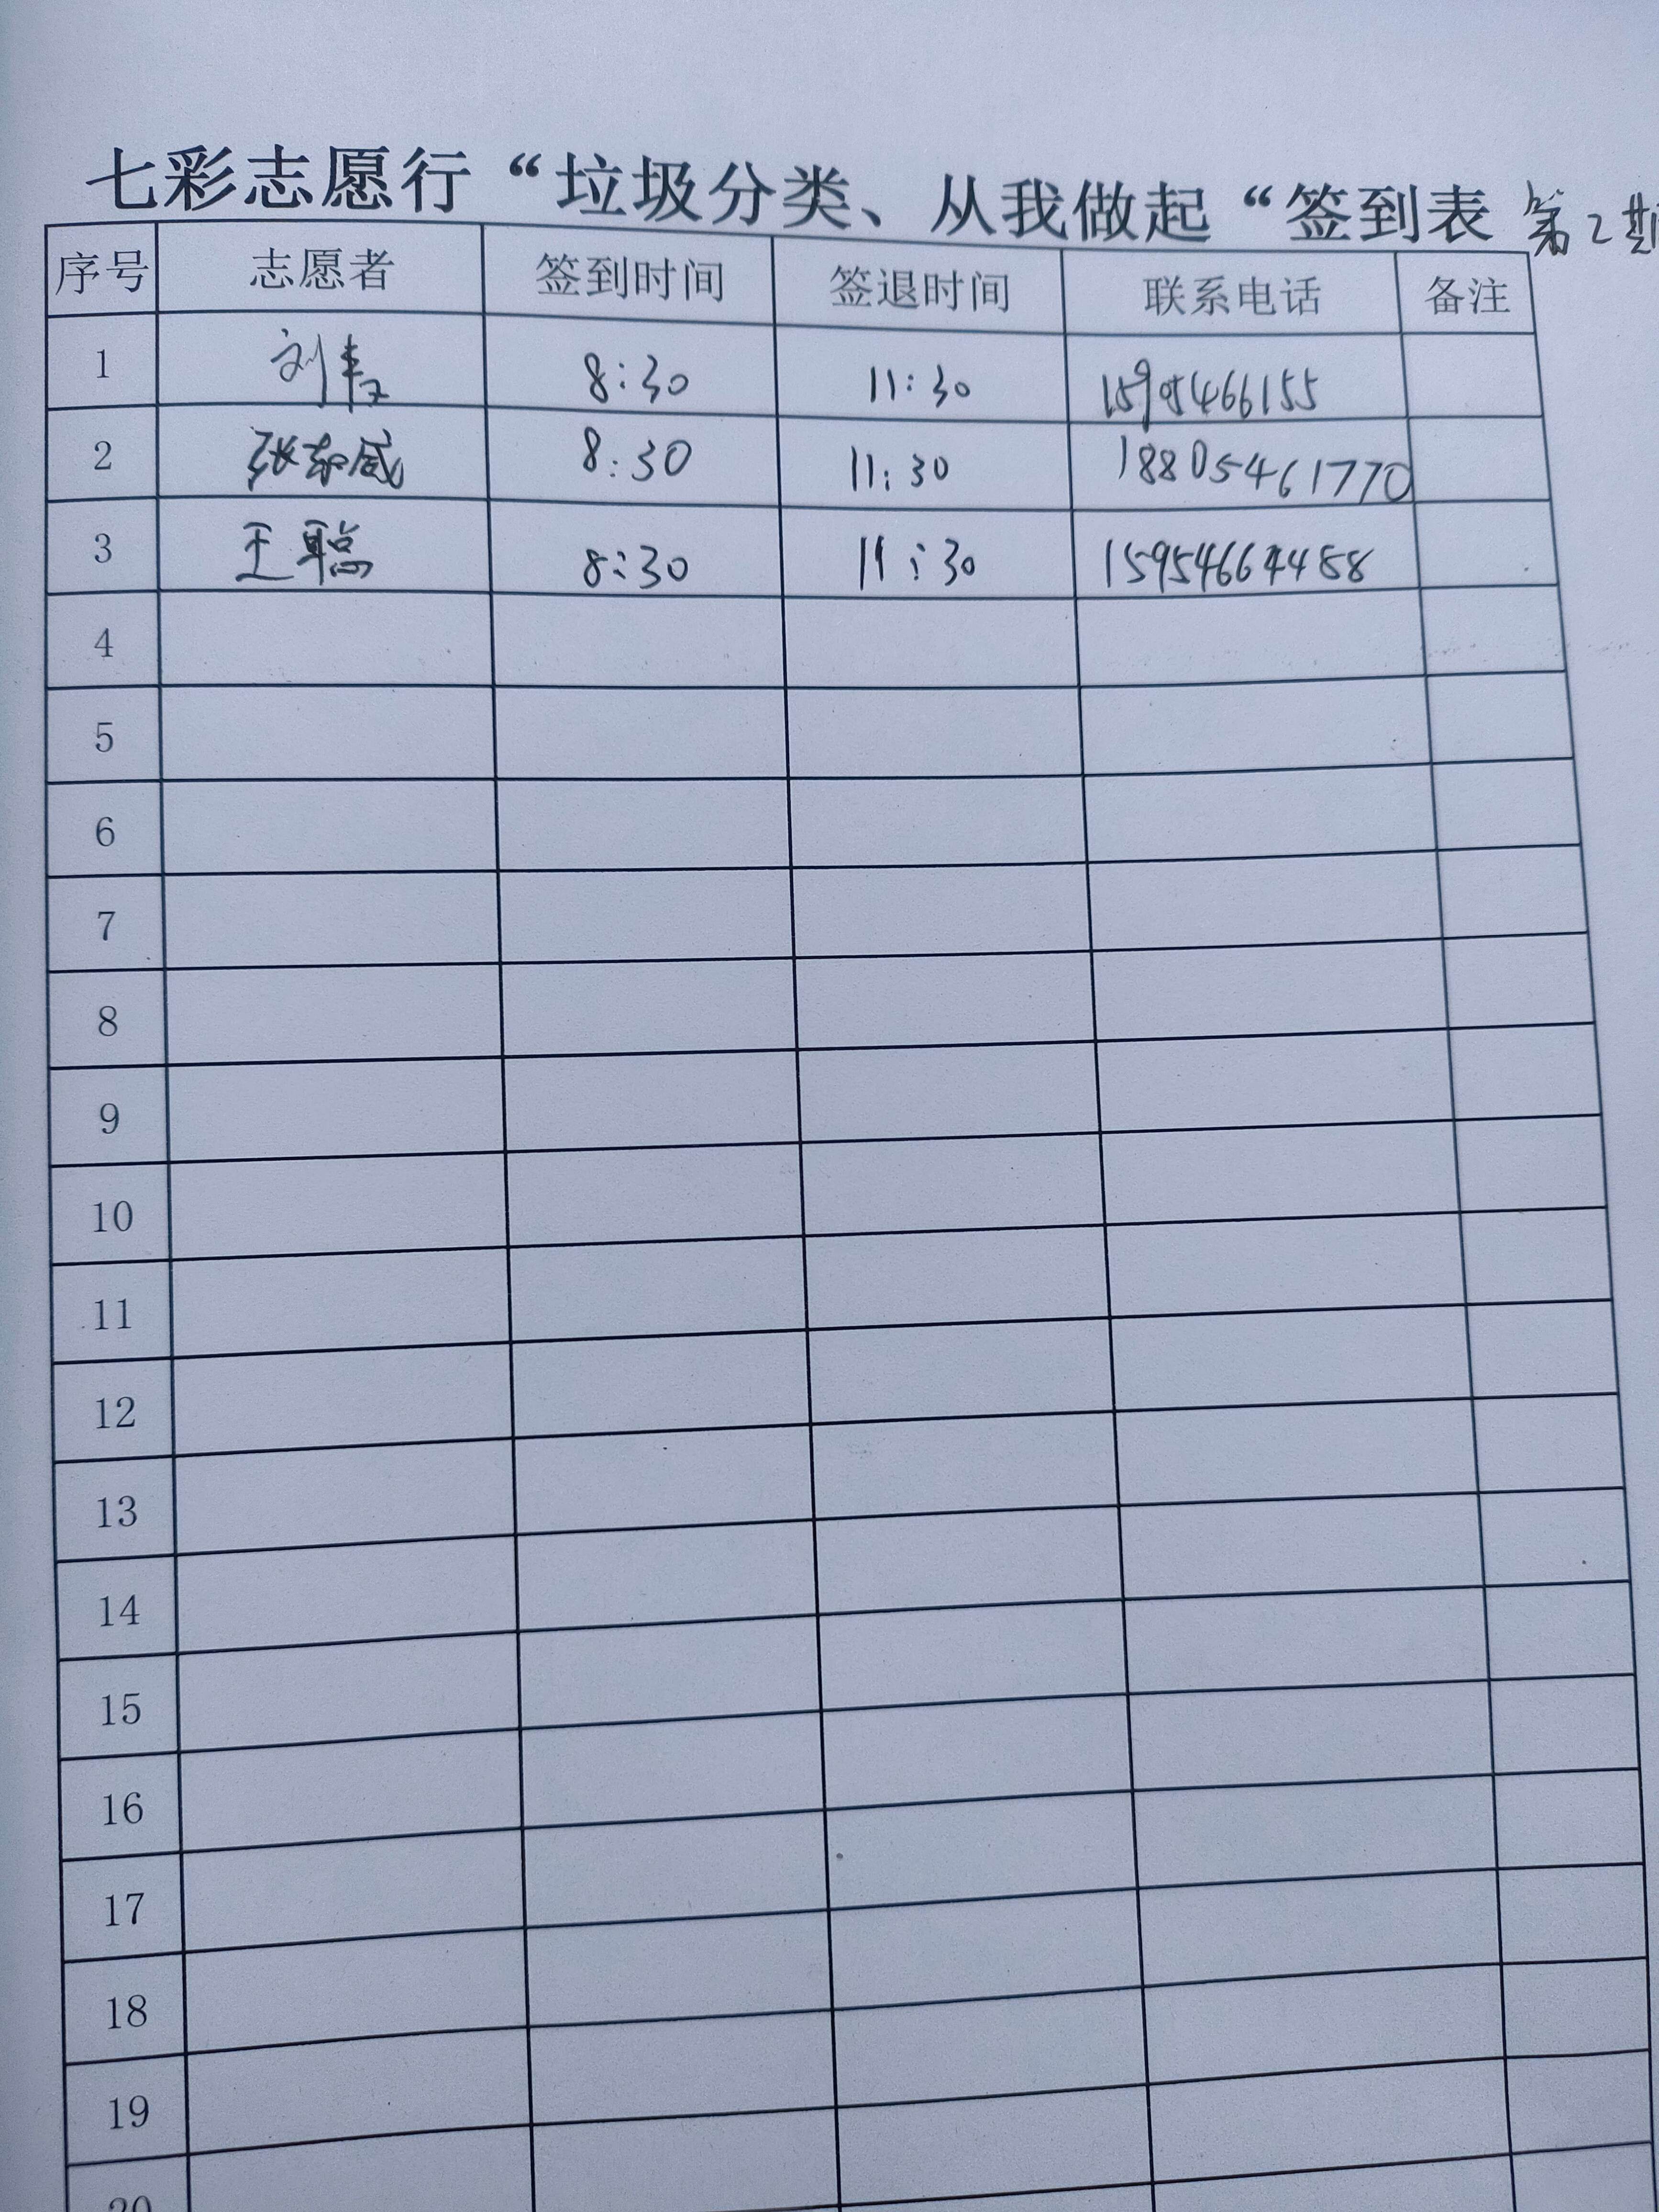 七彩志愿行“垃圾分类、从我做起“签到表 第2期
序号 志愿者 签到时间 签退时间 联系电话 备注
1 刘 8:30 11:30 15905466155
2 张志威 8:30 11:30 18805461770
3 王聪 8:30 11:30
4
5
6
7
8
9
10
11
12
13
14
15
16
17
18
19
20